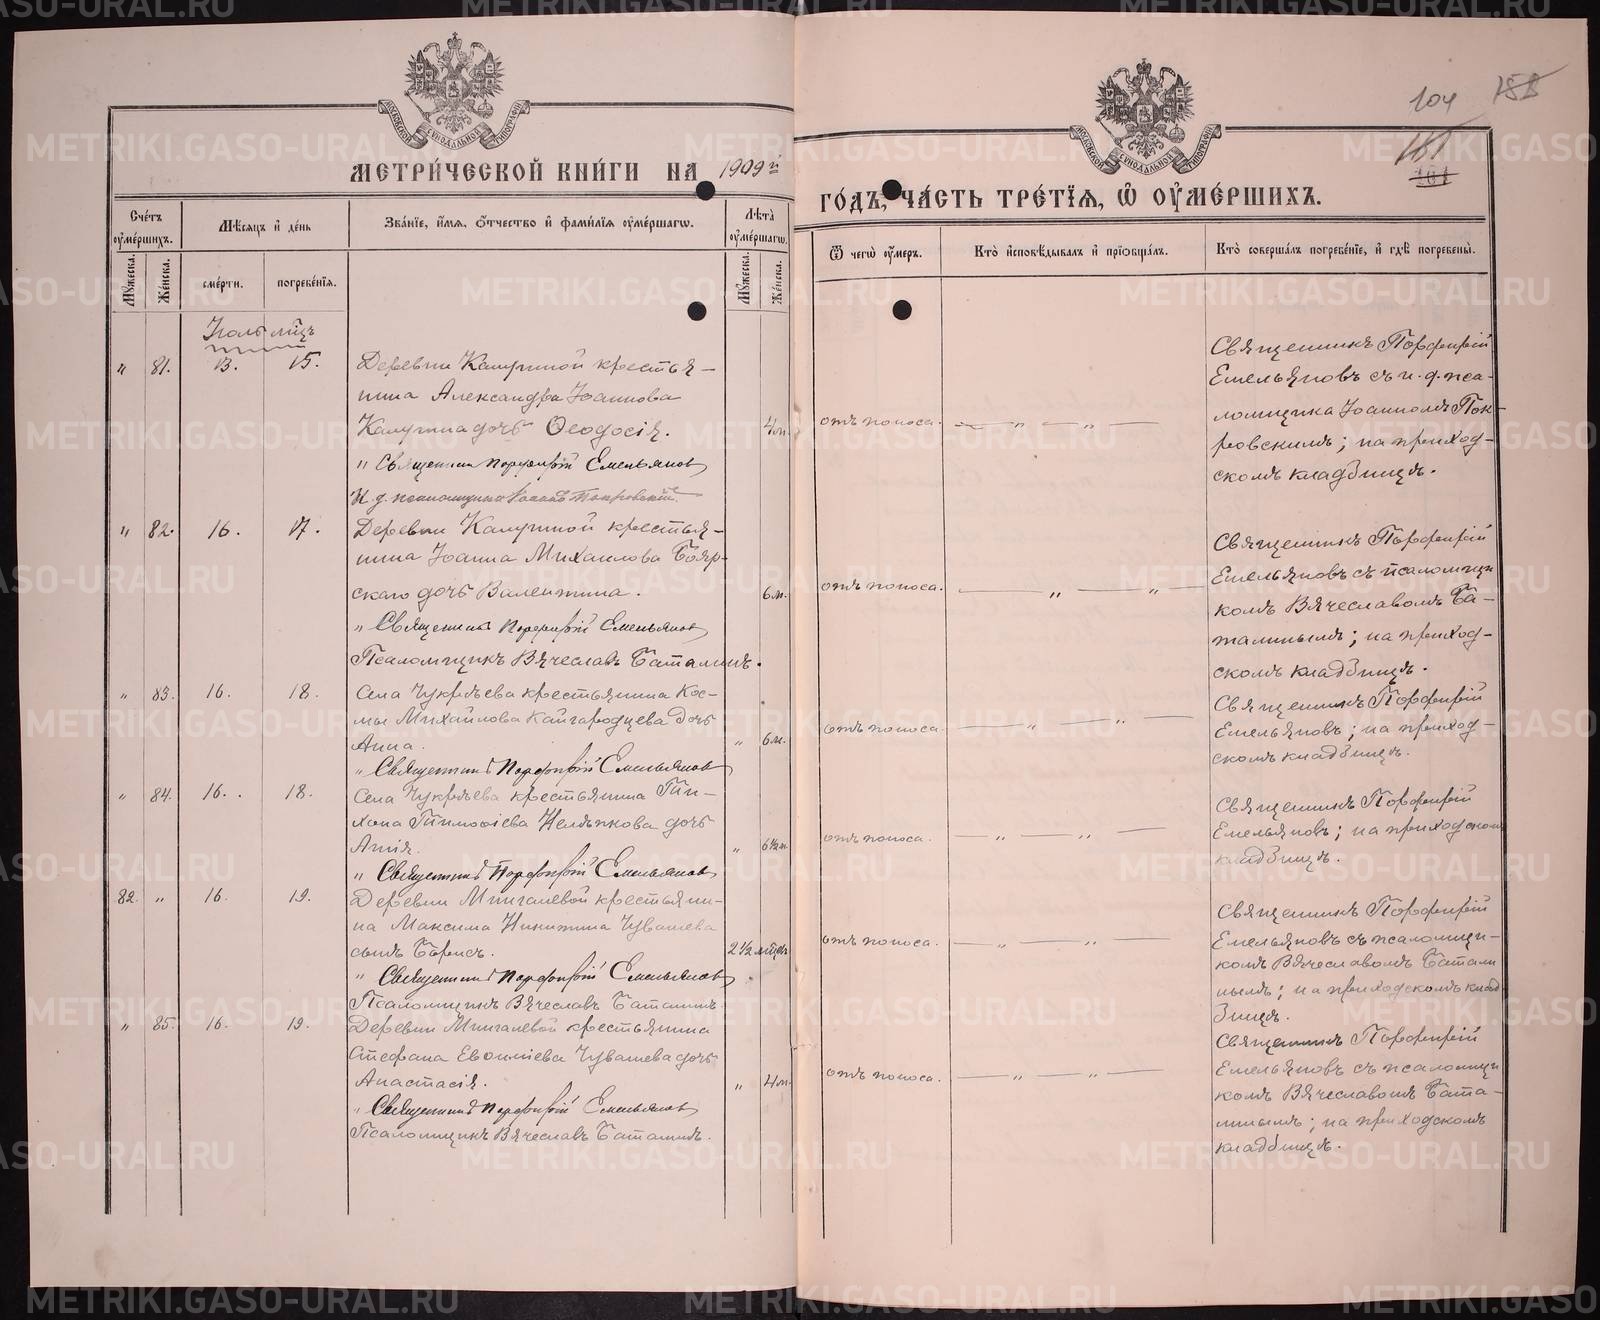 МОСКОВСКОЙ СУНОДАЛЬНОЙ ТИПОГРАФІИ
МОСКОВСКОЙ СУНОДАЛЬНОЙ ТИПОГРАФІИ
104
МЕТРИ́ЧЕСКОЙ КНИ́ГИ НА 1909 й
ГО́ДЪ, ЧА́СТЬ ТРЕ́ТІЯ, Ѡ҆ ОУ҆МЕ́РШИХЪ.
Сче́тъ оу҆ме́ршихъ.
Мѣ́сяцъ и҆ де́нь
Зва́ніе, и҆́мя, ѻ҆́тчество и҆ фами́лія оу҆ме́ршагѡ.
Лѣ́та оу҆ме́ршагѡ.
Ѿ чегѡ̀ оу҆́меръ.
Кто̀ и҆сповѣ́дывалъ и҆ прїѡбща́лъ.
Кто̀ соверша́лъ погребе́ніе, и҆ гдѣ̀ погребены̀.
Мꙋ́жеска.
Же́нска.
сме́рти.
погребе́нія.
Мꙋ́жеска.
Же́нска.
Іюль мѣцъ
" 81. 13. 15. Деревни Калугиной крестья-
нина Александра Іоаннова
Калугина дочь Ѳеодосія. 4 м.
" Священникъ Порфирій Емельяновъ
И. д. псаломщика Іоаннъ Покровскій
отъ поноса. " "
Священникъ Порфирій
Емельяновъ съ и. д. пса-
ломщика Іоанномъ Пок-
ровскимъ; на приход-
скомъ кладбищѣ.
" 82. 16. 17. Деревни Калугиной крестья-
нина Іоанна Михаилова Бояр-
скаго дочь Валентина. 6 м.
" Священникъ Порфирій Емельяновъ
Псаломщикъ Вячеславъ Баталинъ.
отъ поноса. " "
Священникъ Порфирій
Емельяновъ съ псаломщи
комъ Вячеславомъ Ба-
талинымъ; на приход-
скомъ кладбищѣ.
" 83. 16. 18. Села Чукрѣева крестьянина Кос-
мы Михайлова Кайгародцева дочь
Анна. " 6 м.
" Священникъ Порфирій Емельяновъ
отъ поноса. " "
Священникъ Порфирій
Емельяновъ; на приход-
скомъ кладбищѣ.
" 84. 16. 18. Села Чукрѣева крестьянина Ти-
хона Тимоѳіева дочь
" 6½ м.
" Священникъ Порфирій Емельяновъ
отъ поноса. " "
Священникъ Порфирій
Емельяновъ; на приходскомъ
кладбищѣ.
82. " 16. 19. Деревни Мингалевой крестьяни-
на Максима Никитина Чувашева
сынъ Борисъ. 2½ мѣсяц.
" Священникъ Порфирій Емельяновъ
Псаломщикъ Вячеславъ Баталинъ
отъ поноса. " "
Священникъ Порфирій
Емельяновъ съ псаломщи-
комъ Вячеславомъ Батали
нымъ; на приходскомъ клад-
бищѣ.
" 85. 16. 19. Деревни Мингалевой крестьянина
Стефана Евѳиміева Чувашева дочь
Анастасія. " 4 м.
" Священникъ Порфирій Емельяновъ
Псаломщикъ Вячеславъ Баталинъ.
отъ поноса. " "
Священникъ Порфирій
Емельяновъ съ псаломщи
комъ Вячеславомъ Бата-
линымъ; на приходскомъ
кладбищѣ.
METRIKI.GASO-URAL.RU